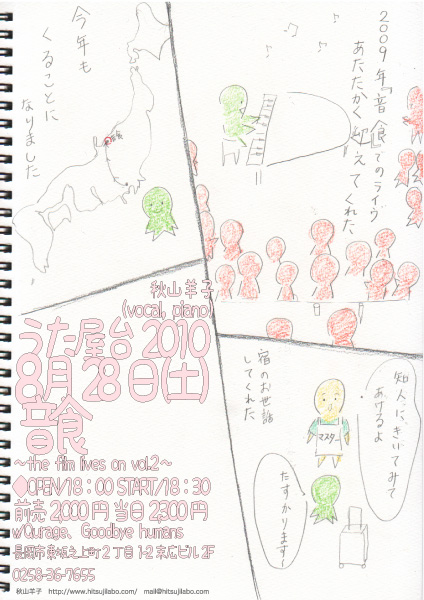 2009年「音食」でのライヴ
あたたかく迎えてくれた
今年も
くることに
なりました
秋山羊子
(vocal, piano)
うた屋台 2010
8月28日(土)
音食
～the film lives on vol.2～
◆OPEN/18：00 START/18：30
前売 2,000円 当日 2,300円
w/Ourage、Goodbye humans
長岡市東坂之上町2丁目1-2 末広ビル2F
0258-36-7655
宿のお世話
してくれた
知人に、きいてみて
あげるよ
マスター
たすかります～
秋山羊子 http://www.hitsujilabo.com/ mail@hitsujilabo.com